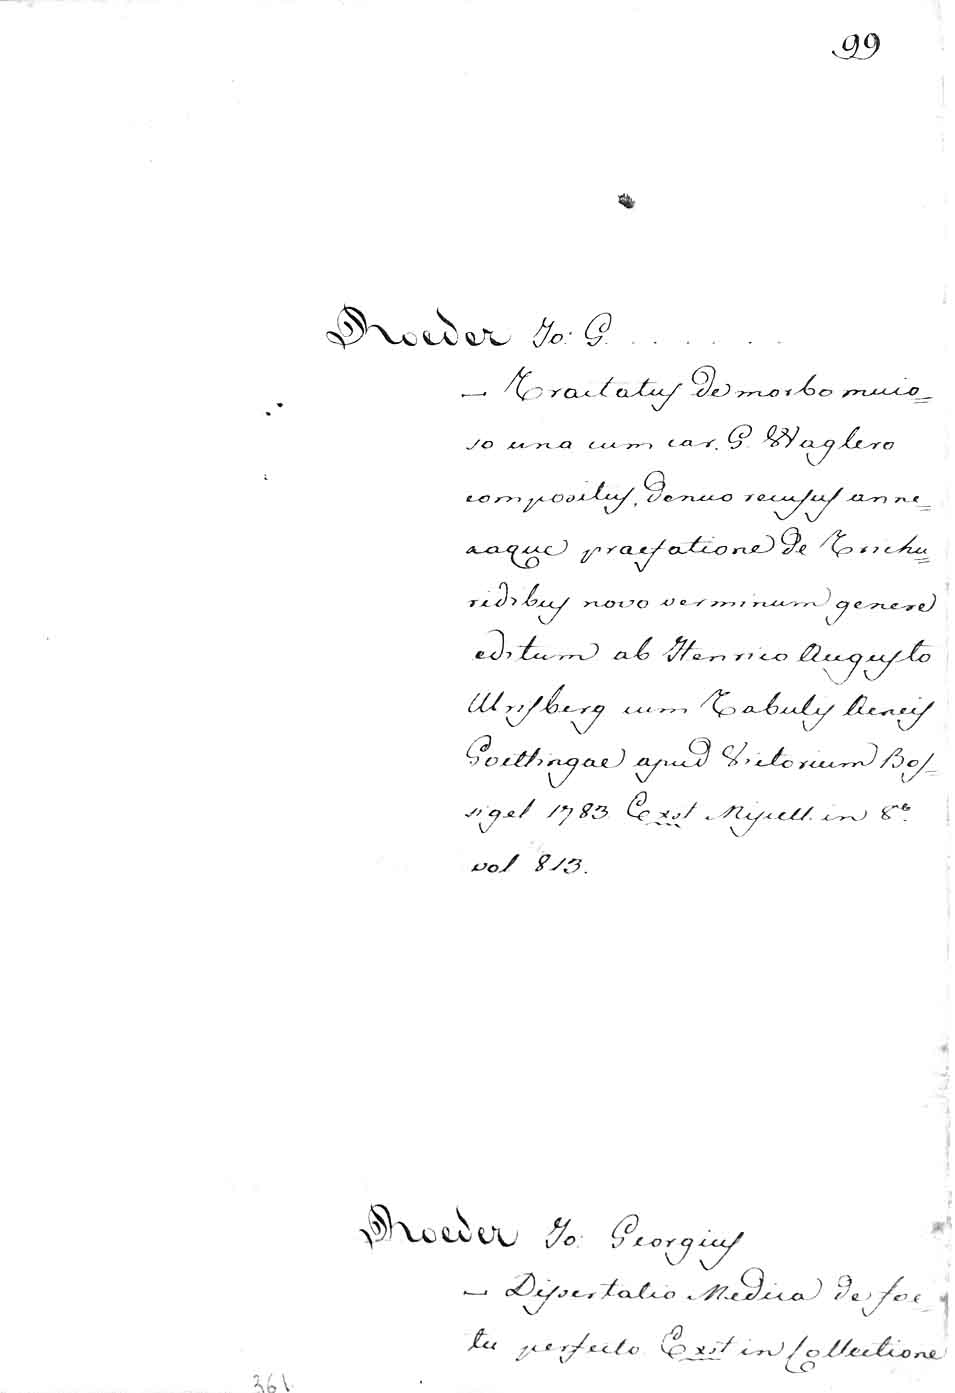 99
Roeder Jo: G. . . . . . .
— Tractatus de morbo muco=
so una cum car. G. Waglero
compositus, denuo recusus anne=
aaque praefatione de Trichu=
ridibus novo verminum genere
editum ab Henrico Augusto
Wrisberg cum Tabulis Aeneis
Goettingae apud Victorium Bos=
sigel 1783 Exst Miscell. in 8º.
vol 813.
Roeder Jo: Georgius
— Dissertatio Medica de foe=
tu perfecto Exst in Collectione
361